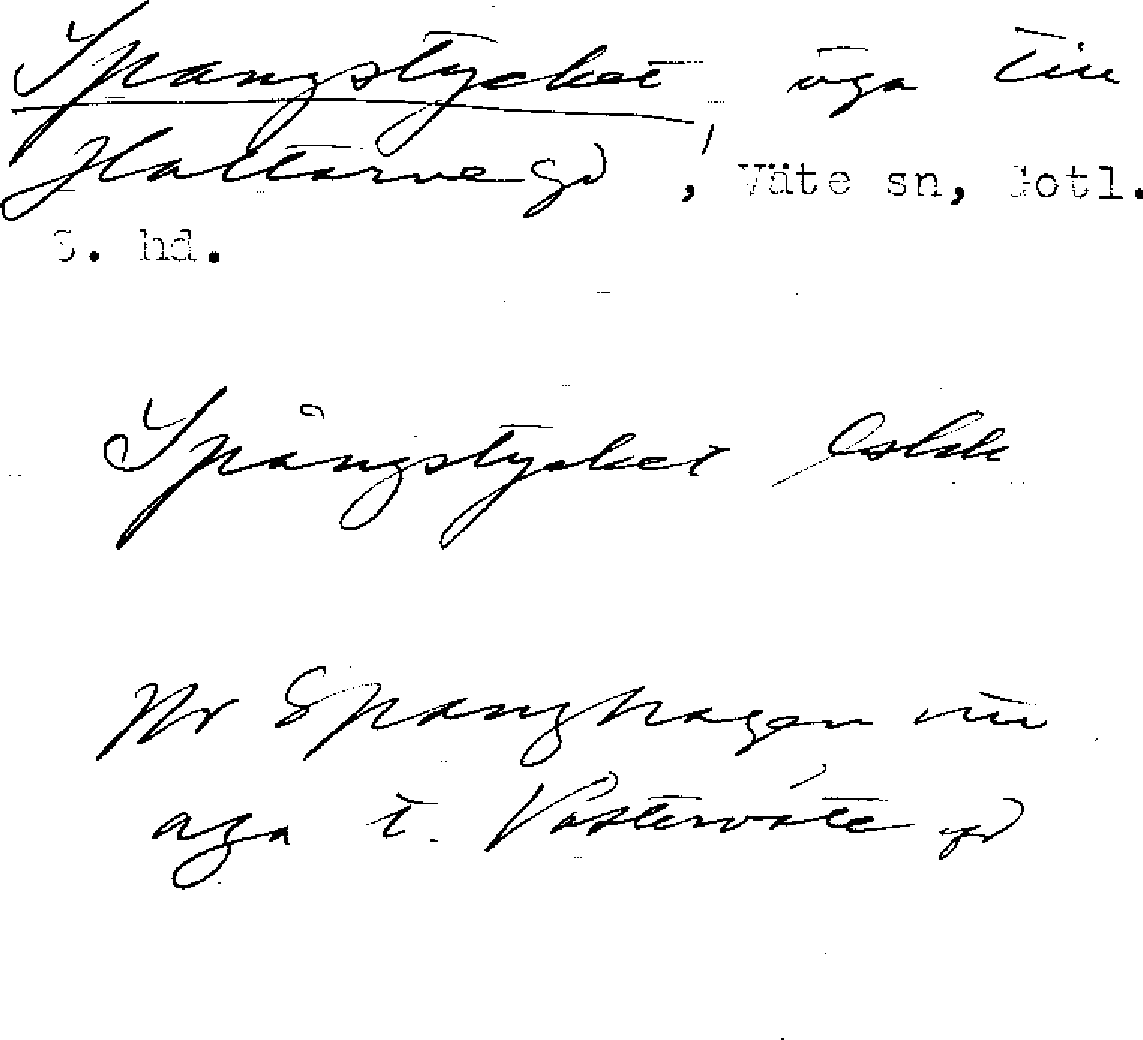 Spångstycket, äga till
Hallvarve gd, Väte sn, Gotl.
S. hd.
Spångstycket
Jfr Spånghagen nu
äga t. Västerväte gd